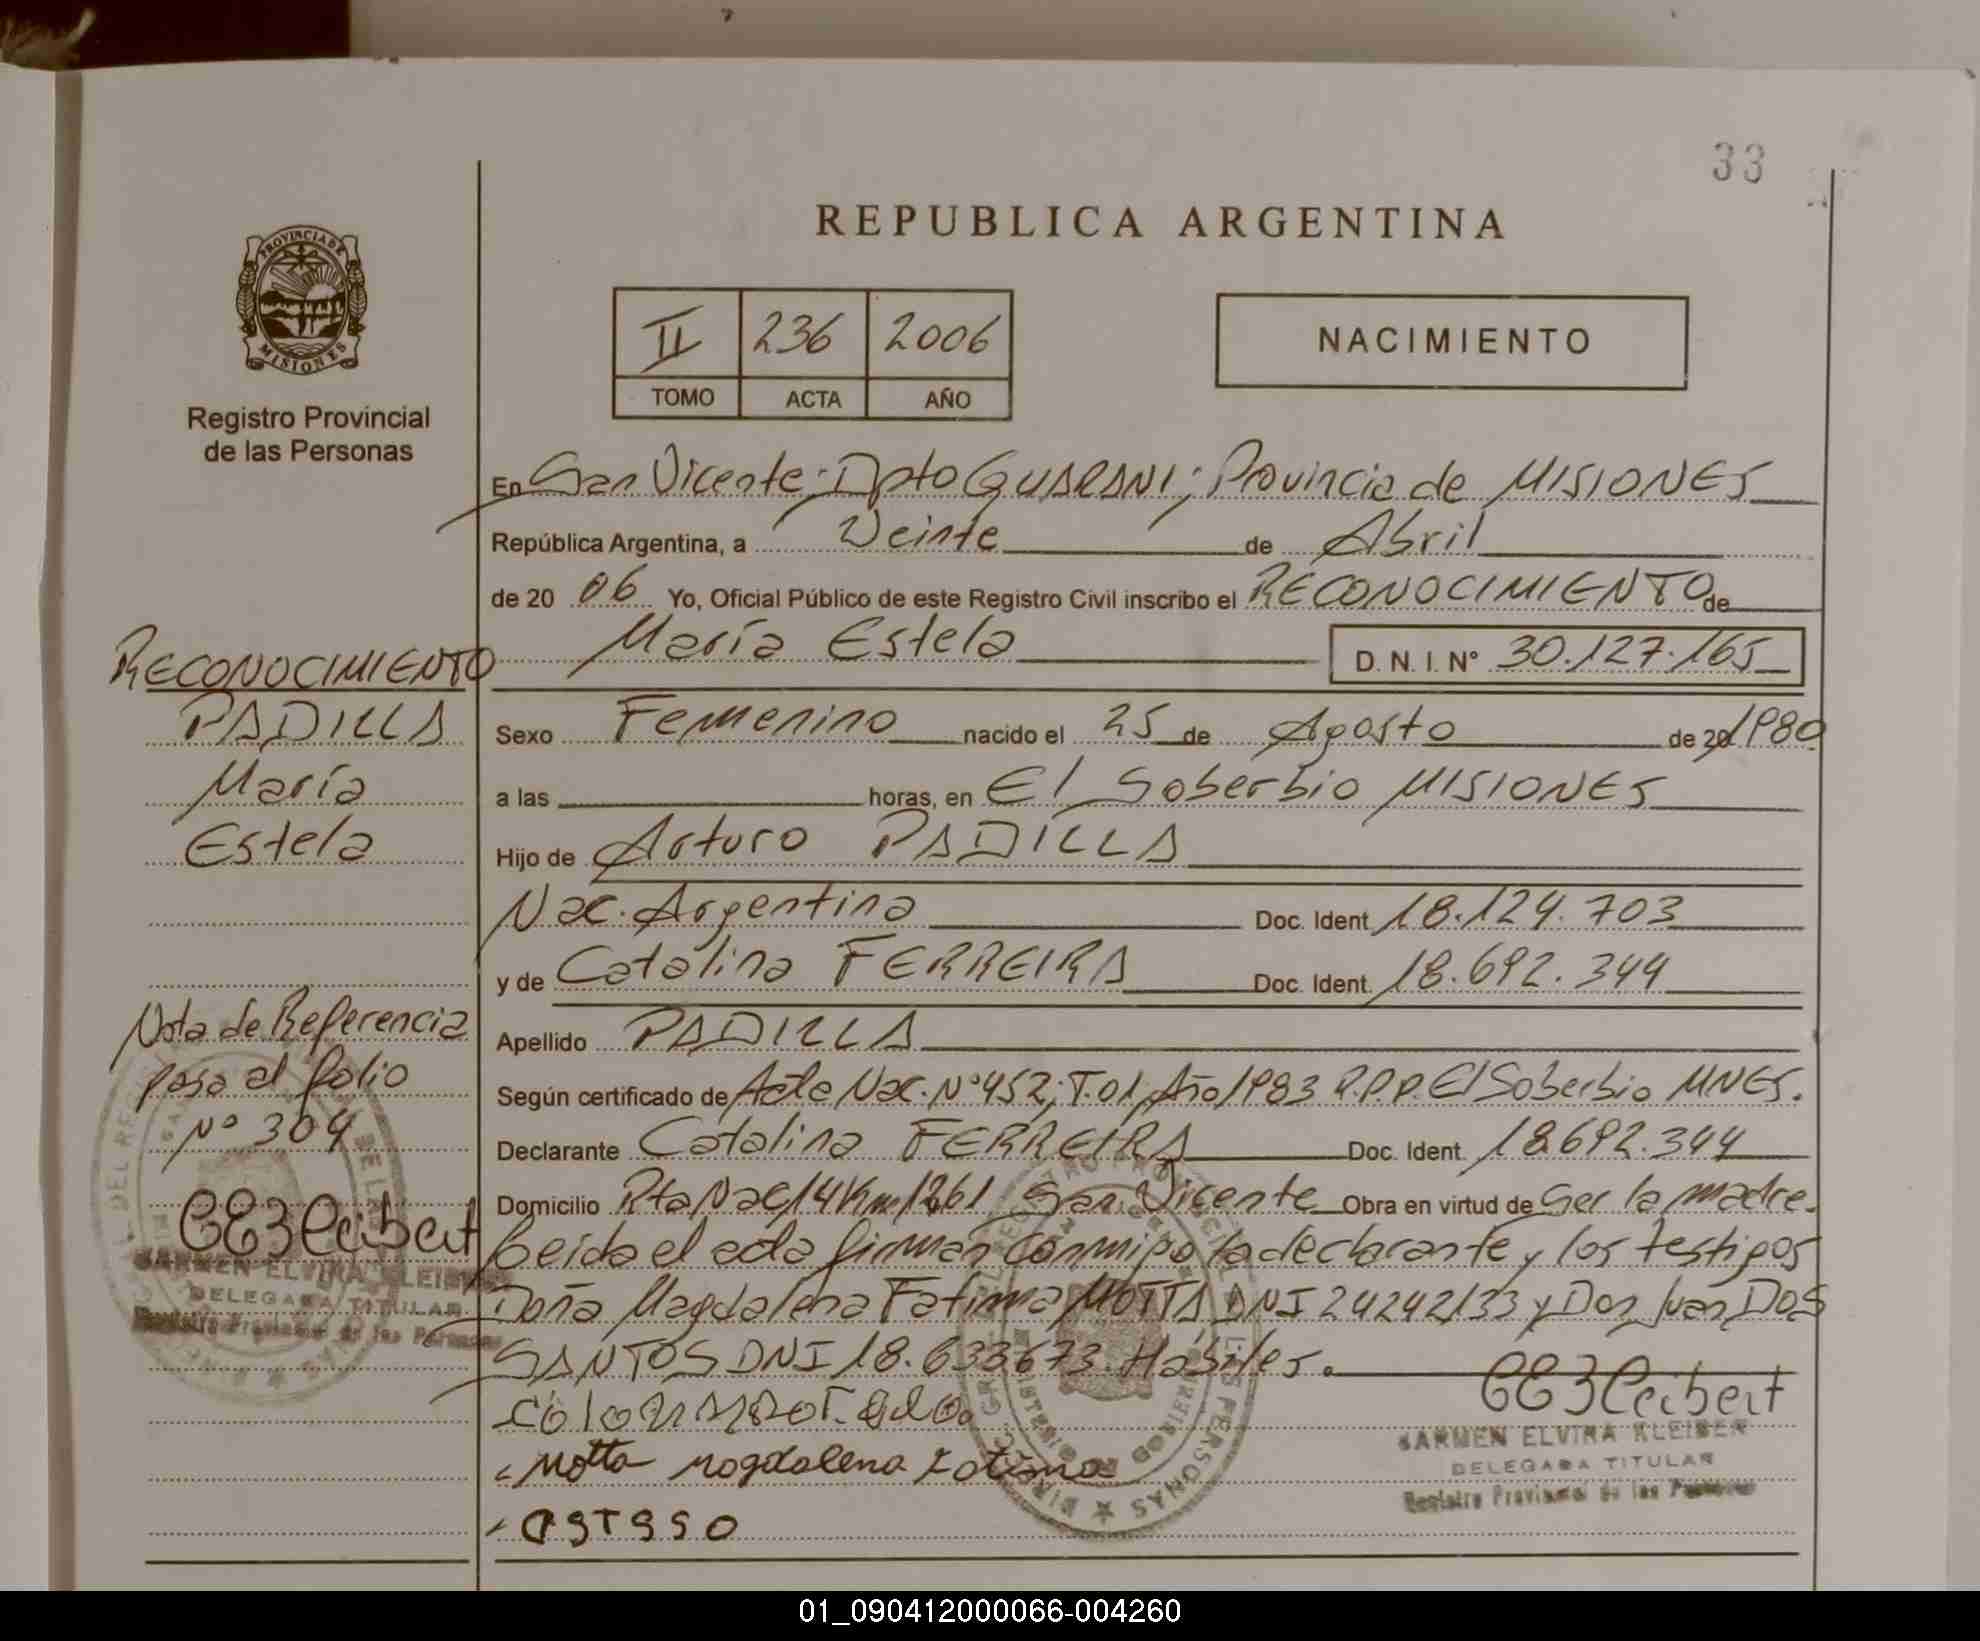 33
REPUBLICA ARGENTINA
PROVINCIA DE
MISIONES
Registro Provincial
de las Personas
II 236 2006
TOMO ACTA AÑO
NACIMIENTO
En San Vicente; Dpto GUARANI; Provincia de MISIONES
República Argentina, a Veinte de Abril
de 20 06 Yo, Oficial Público de este Registro Civil inscribo el RECONOCIMIENTO de
María Estela D. N. I. Nº 30.127.165
RECONOCIMIENTO
PADILLA
María
Estela
Sexo Femenino nacido el 25 de Agosto de 20 1980
a las horas, en El Soberbio MISIONES
Hijo de Arturo PADILLA
Nac. Argentina Doc. Ident. 18.124.703
y de Catalina FERREIRA Doc. Ident. 18.692.344
Apellido PADILLA
Según certificado de Acta Nac. Nº 452; T.01; Año 1983 R.P.P. El Soberbio MNES.
Declarante Catalina FERREIRA Doc. Ident. 18.692.344
Domicilio Rta Nac 14 Km 1261 San Vicente Obra en virtud de Ser la madre.
Leida el acta firman conmigo la declarante y los testigos
Doña Magdalena Fatima MOTTA DNI 24242133 y Don Juan DOS
SANTOS DNI 18.633673. Hábiles.
Motta Magdalena Fatima
Nota de Referencia
pasa al folio
Nº 304
CARMEN ELVIRA KLEIBER
DELEGADA TITULAR
Registro Provincial de las Personas
CARMEN ELVIRA KLEIBER
DELEGADA TITULAR
Registro Provincial de las Personas
01_090412000066-004260